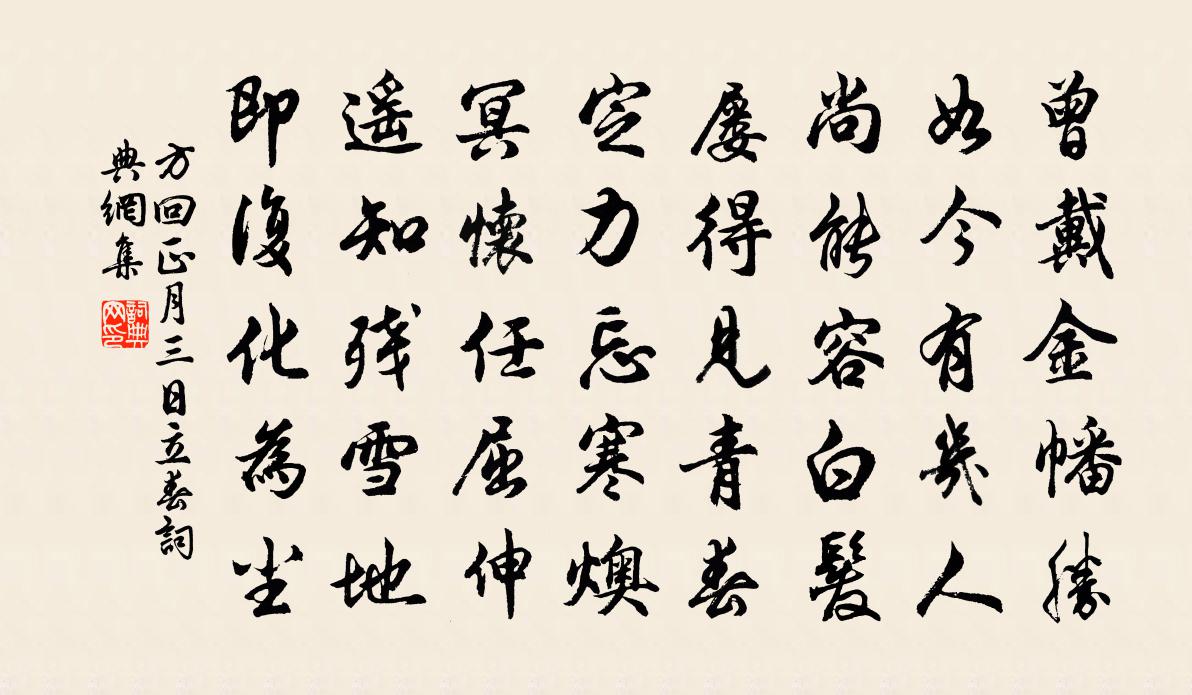 曾戴金幡勝
如今有幾人
尚能容白髮
屢得見青春
定力忘寒燠
冥懷任屈伸
遥知残雪地
即復化為尘
方回正月三日立春詞
典網集
詞典
网印